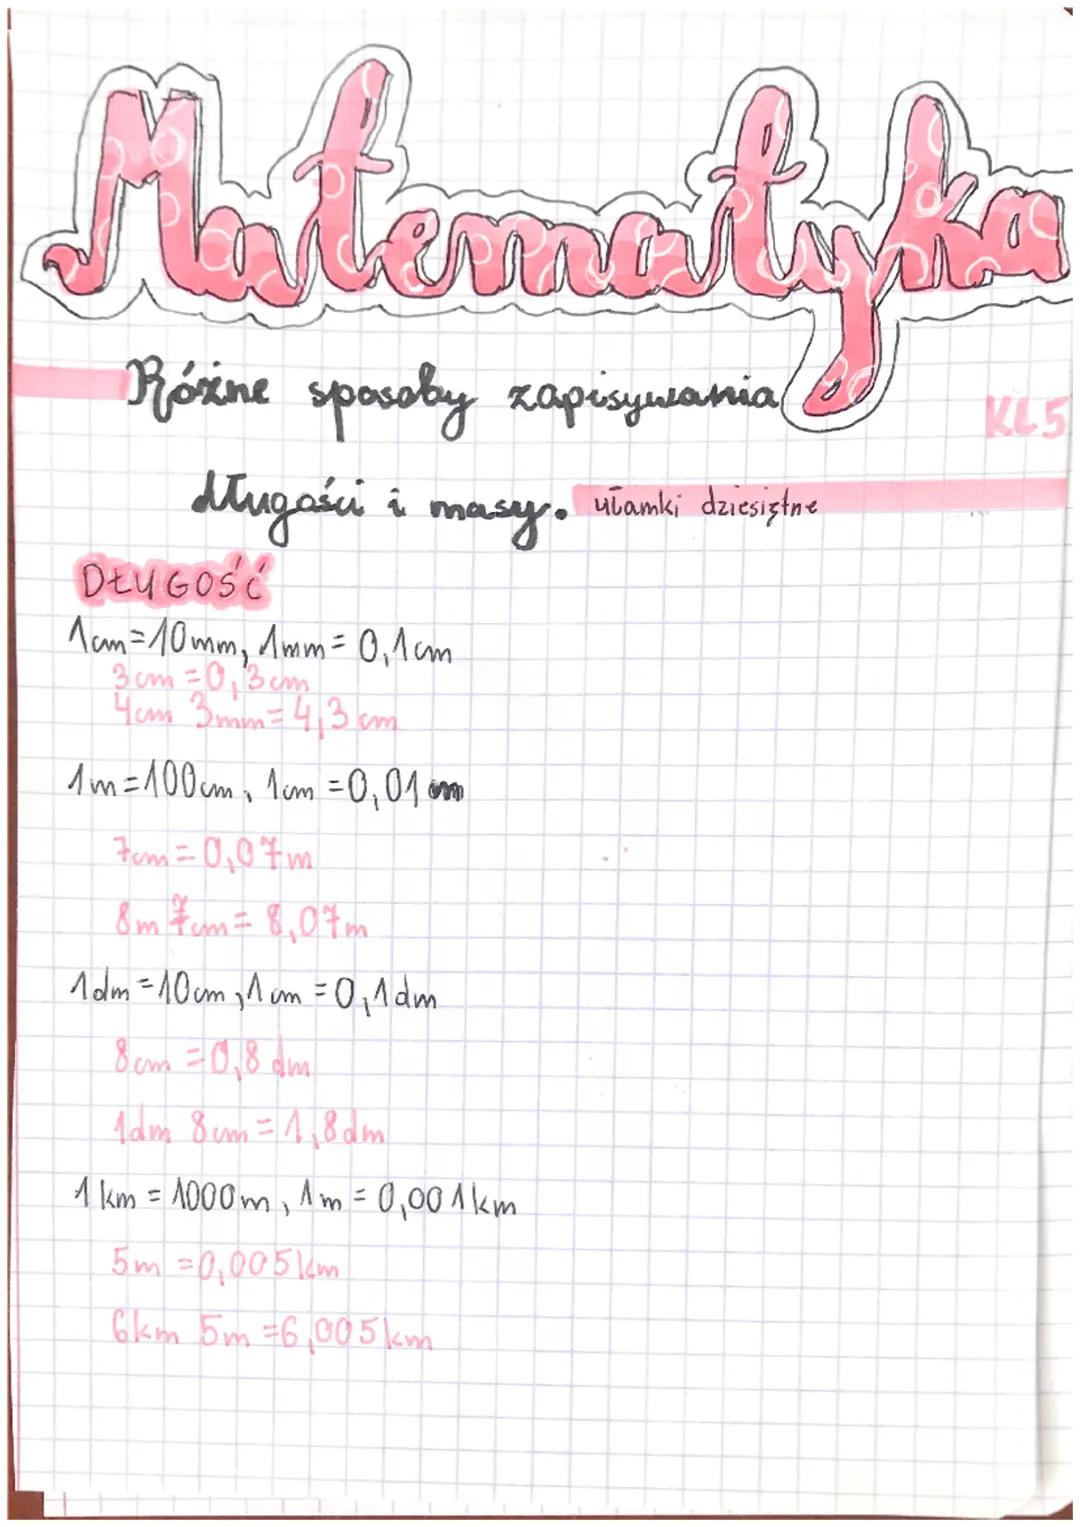 Matematyka
Różne sposoby zapisywania
KL5
długości i masy. ułamki dziesiętne
DŁUGOŚĆ
1cm=10mm, 1mm=0,1cm
3cm=0,3cm
4cm 3mm=4,3cm
1m=100cm, 1cm=0,01m
7cm=0,07m
8m 7cm=8,07m
1dm=10cm, 1cm=0,1dm
8cm=0,8dm
1dm 8cm=1,8dm
1km=1000m, 1m=0,001km
5m=0,005km
6km 5m=6,005km